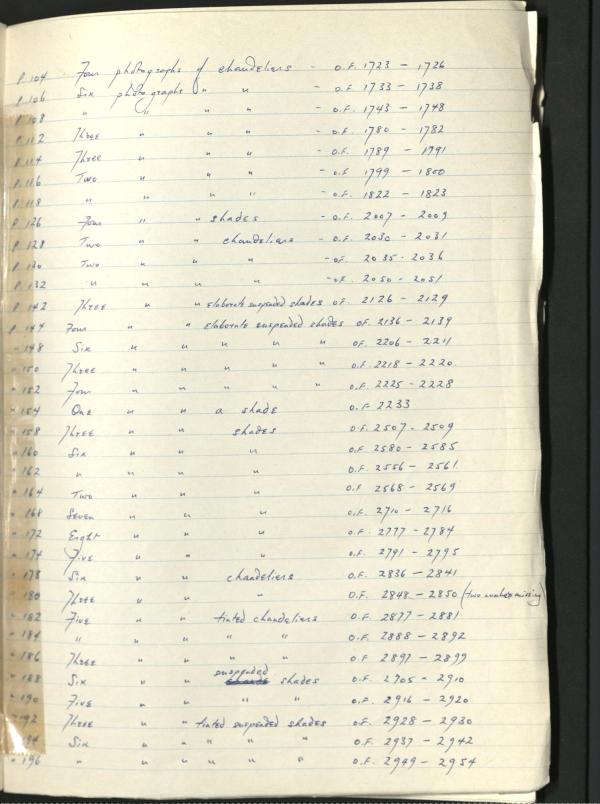 P. 104 - Four photographs of chandeliers - O.F. 1723 - 1726
P. 106 Six photographs " " - O.F. 1733 - 1738
P. 108 " " " " - O.F. 1743 - 1748
P. 112 Three " " " - O.F. 1780 - 1782
P. 114 Three " " " - O.F. 1789 - 1791
P. 116 Two " " " - O.F. 1799 - 1800
P. 118 " " " " - O.F. 1822 - 1823
P. 126 Four " " shades - O.F. 2007 - 2009
P. 128 Two " " chandeliers - O.F. 2030 - 2031
P. 130 Two " " " - OF. 2035 - 2036
P. 132 " " " " - OF. 2050 - 2051
P. 142 Three " " Elaborate suspended shades OF. 2126 - 2129
P. 144 Four " " Elaborate suspended shades OF. 2136 - 2139
" 148 Six " " " " " OF. 2206 - 2211
" 150 Three " " " " " O.F. 2218 - 2220
" 152 Four " " " " " O.F. 2225 - 2228
" 154 One " " a shade O.F. 2233
" 158 Three " " shades O.F. 2507 - 2509
" 160 Six " " " O.F. 2580 - 2585
" 162 " " " " O.F. 2556 - 2561
" 164 Two " " " O.F. 2568 - 2569
" 168 Seven " " " O.F. 2710 - 2716
" 172 Eight " " " O.F. 2777 - 2784
" 174 Five " " " O.F. 2791 - 2795
" 178 Six " " chandeliers O.F. 2836 - 2841
" 180 Three " " " O.F. 2848 - 2850 (two numbers missing)
" 182 Five " " tinted chandeliers O.F. 2877 - 2881
" 184 " " " " " O.F. 2888 - 2892
" 186 Three " " " " O.F. 2897 - 2899
" 188 Six " " suspended shades O.F. 2705 - 2910
" 190 Five " " " " O.F. 2916 - 2920
" 192 Three " " tinted suspended shades O.F. 2928 - 2930
" 194 Six " " " " " O.F. 2937 - 2942
" 196 " " " " " " O.F. 2949 - 2954